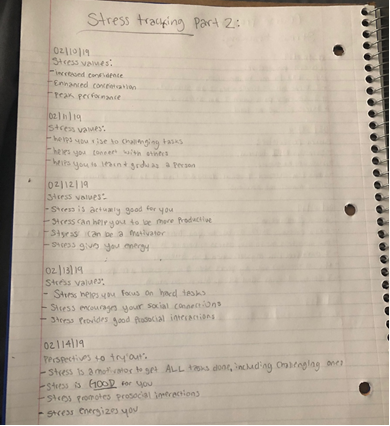 Stress tracking Part 2:
02/10/19
Stress values:
- Increased confidence
- Enhanced concentration
- Peak performance
02/11/19
Stress values:
- helps you rise to challenging tasks
- helps you connect with others
- helps you to learn + grow as a person
02/12/19
Stress values:
- Stress is actually good for you
- Stress can help you to be more productive
- Stress can be a motivator
- Stress gives you energy
02/13/19
Stress values:
- Stress helps you focus on hard tasks
- Stress encourages your social connections
- Stress provides good prosocial interactions
02/14/19
Perspectives to try out:
- Stress is a motivator to get ALL tasks done, including challenging ones
- Stress is GOOD for you
- Stress promotes prosocial interactions
- Stress energizes you